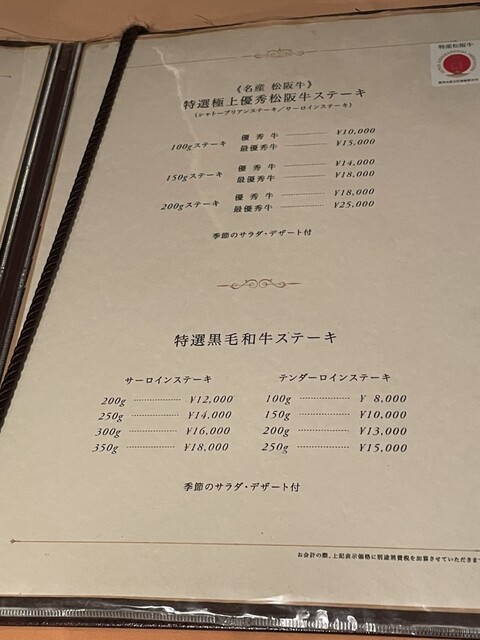 特産松阪牛
《名産 松阪牛》
特選極上優秀松阪牛ステーキ
(シャトーブリアンステーキ/サーロインステーキ)
100gステーキ 優秀牛 ¥10,000
最優秀牛 ¥15,000
150gステーキ 優秀牛 ¥14,000
最優秀牛 ¥18,000
200gステーキ 優秀牛 ¥18,000
最優秀牛 ¥25,000
季節のサラダ・デザート付
特選黒毛和牛ステーキ
サーロインステーキ
200g ¥12,000
250g ¥14,000
300g ¥16,000
350g ¥18,000
テンダーロインステーキ
100g ¥ 8,000
150g ¥10,000
200g ¥13,000
250g ¥15,000
季節のサラダ・デザート付
お会計の際、上記表示価格に別途消費税を加算させていただきま